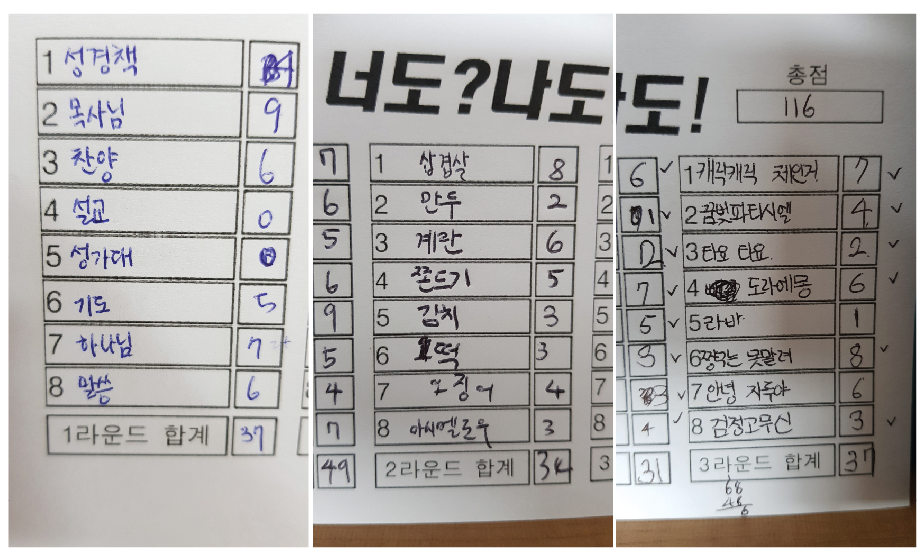 1 성경책 4
2 목사님 9
3 찬양 6
4 설교 0
5 성가대 0
6 기도 5
7 하나님 7
8 말씀 6
1라운드 합계 37
너도?나도
7 1 삼겹살 8 1
6 2 만두 2 2
5 3 계란 6 3
6 4 쫀드기 5 4
9 5 김치 3 5
5 6 떡 3 6
4 7 오징어 4 7
7 8 마시멜로우 3 8
49 2라운드 합계 34 3
도!
총점
116
6 1 캐릭캐릭 체인지 7
1 2 꿈빛파티시엘 4
2 3 타요 타요 2
7 4 도라에몽 6
5 5 라바 1
3 6 짱구는 못말려 8
3 7 안녕 자두야 6
4 8 검정고무신 3
31 3라운드 합계 37
68
48
6